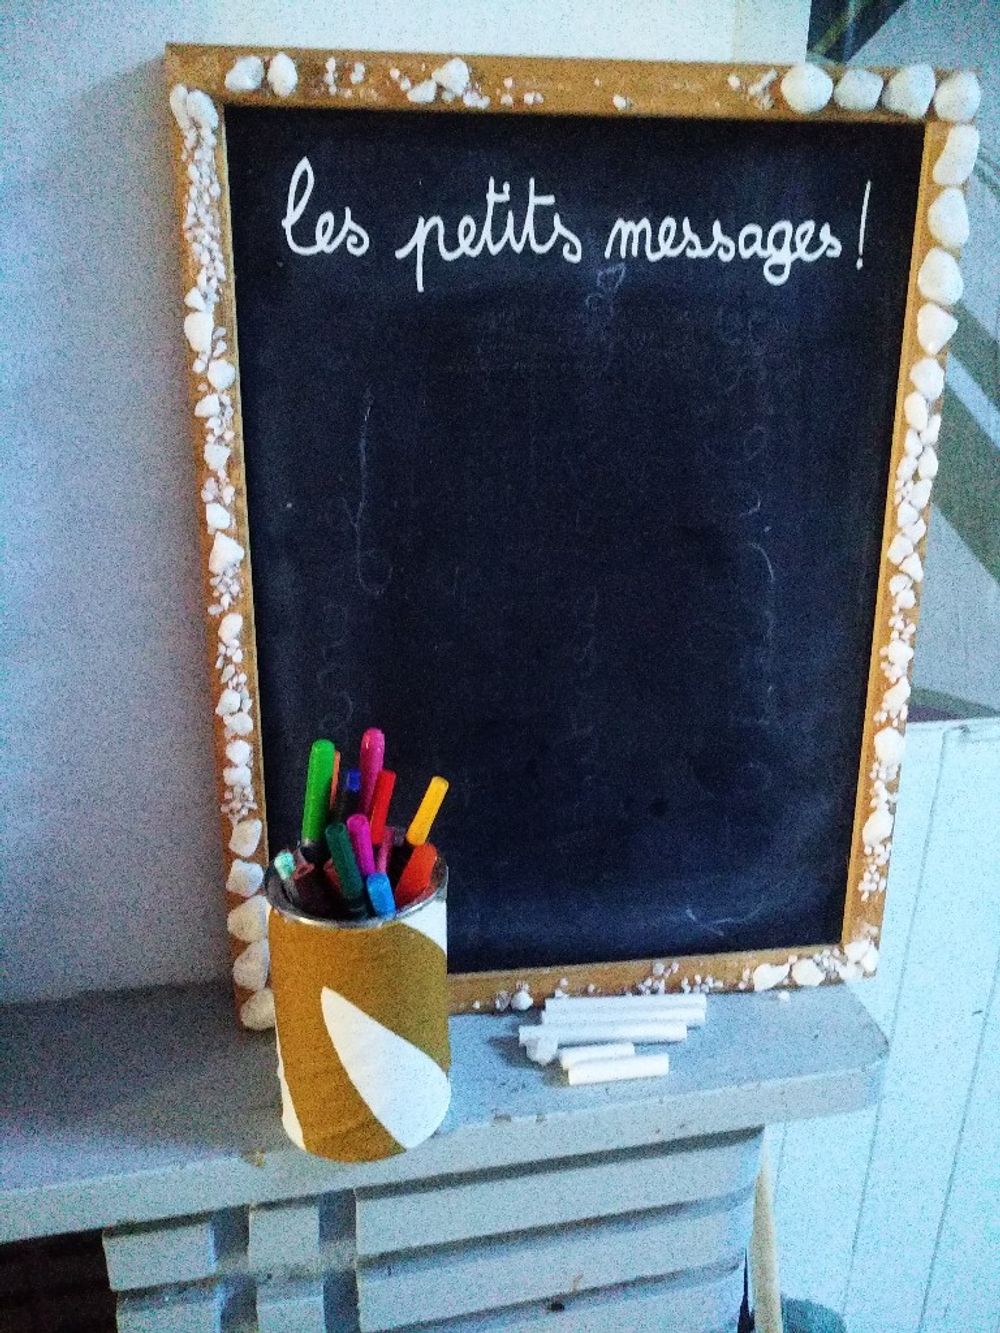 les petits messages!